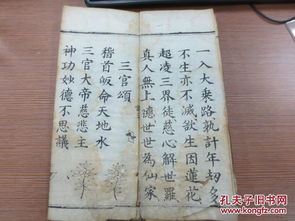 一入大乘路孰計年劫多
不生亦不滅欲生因蓮花
超凌三界徒慈心解世羅
真人無上德世世為仙家
三官頌
稽首皈命天地水
三官大帝慈悲主
神功妙德不思議
孔夫子旧书网